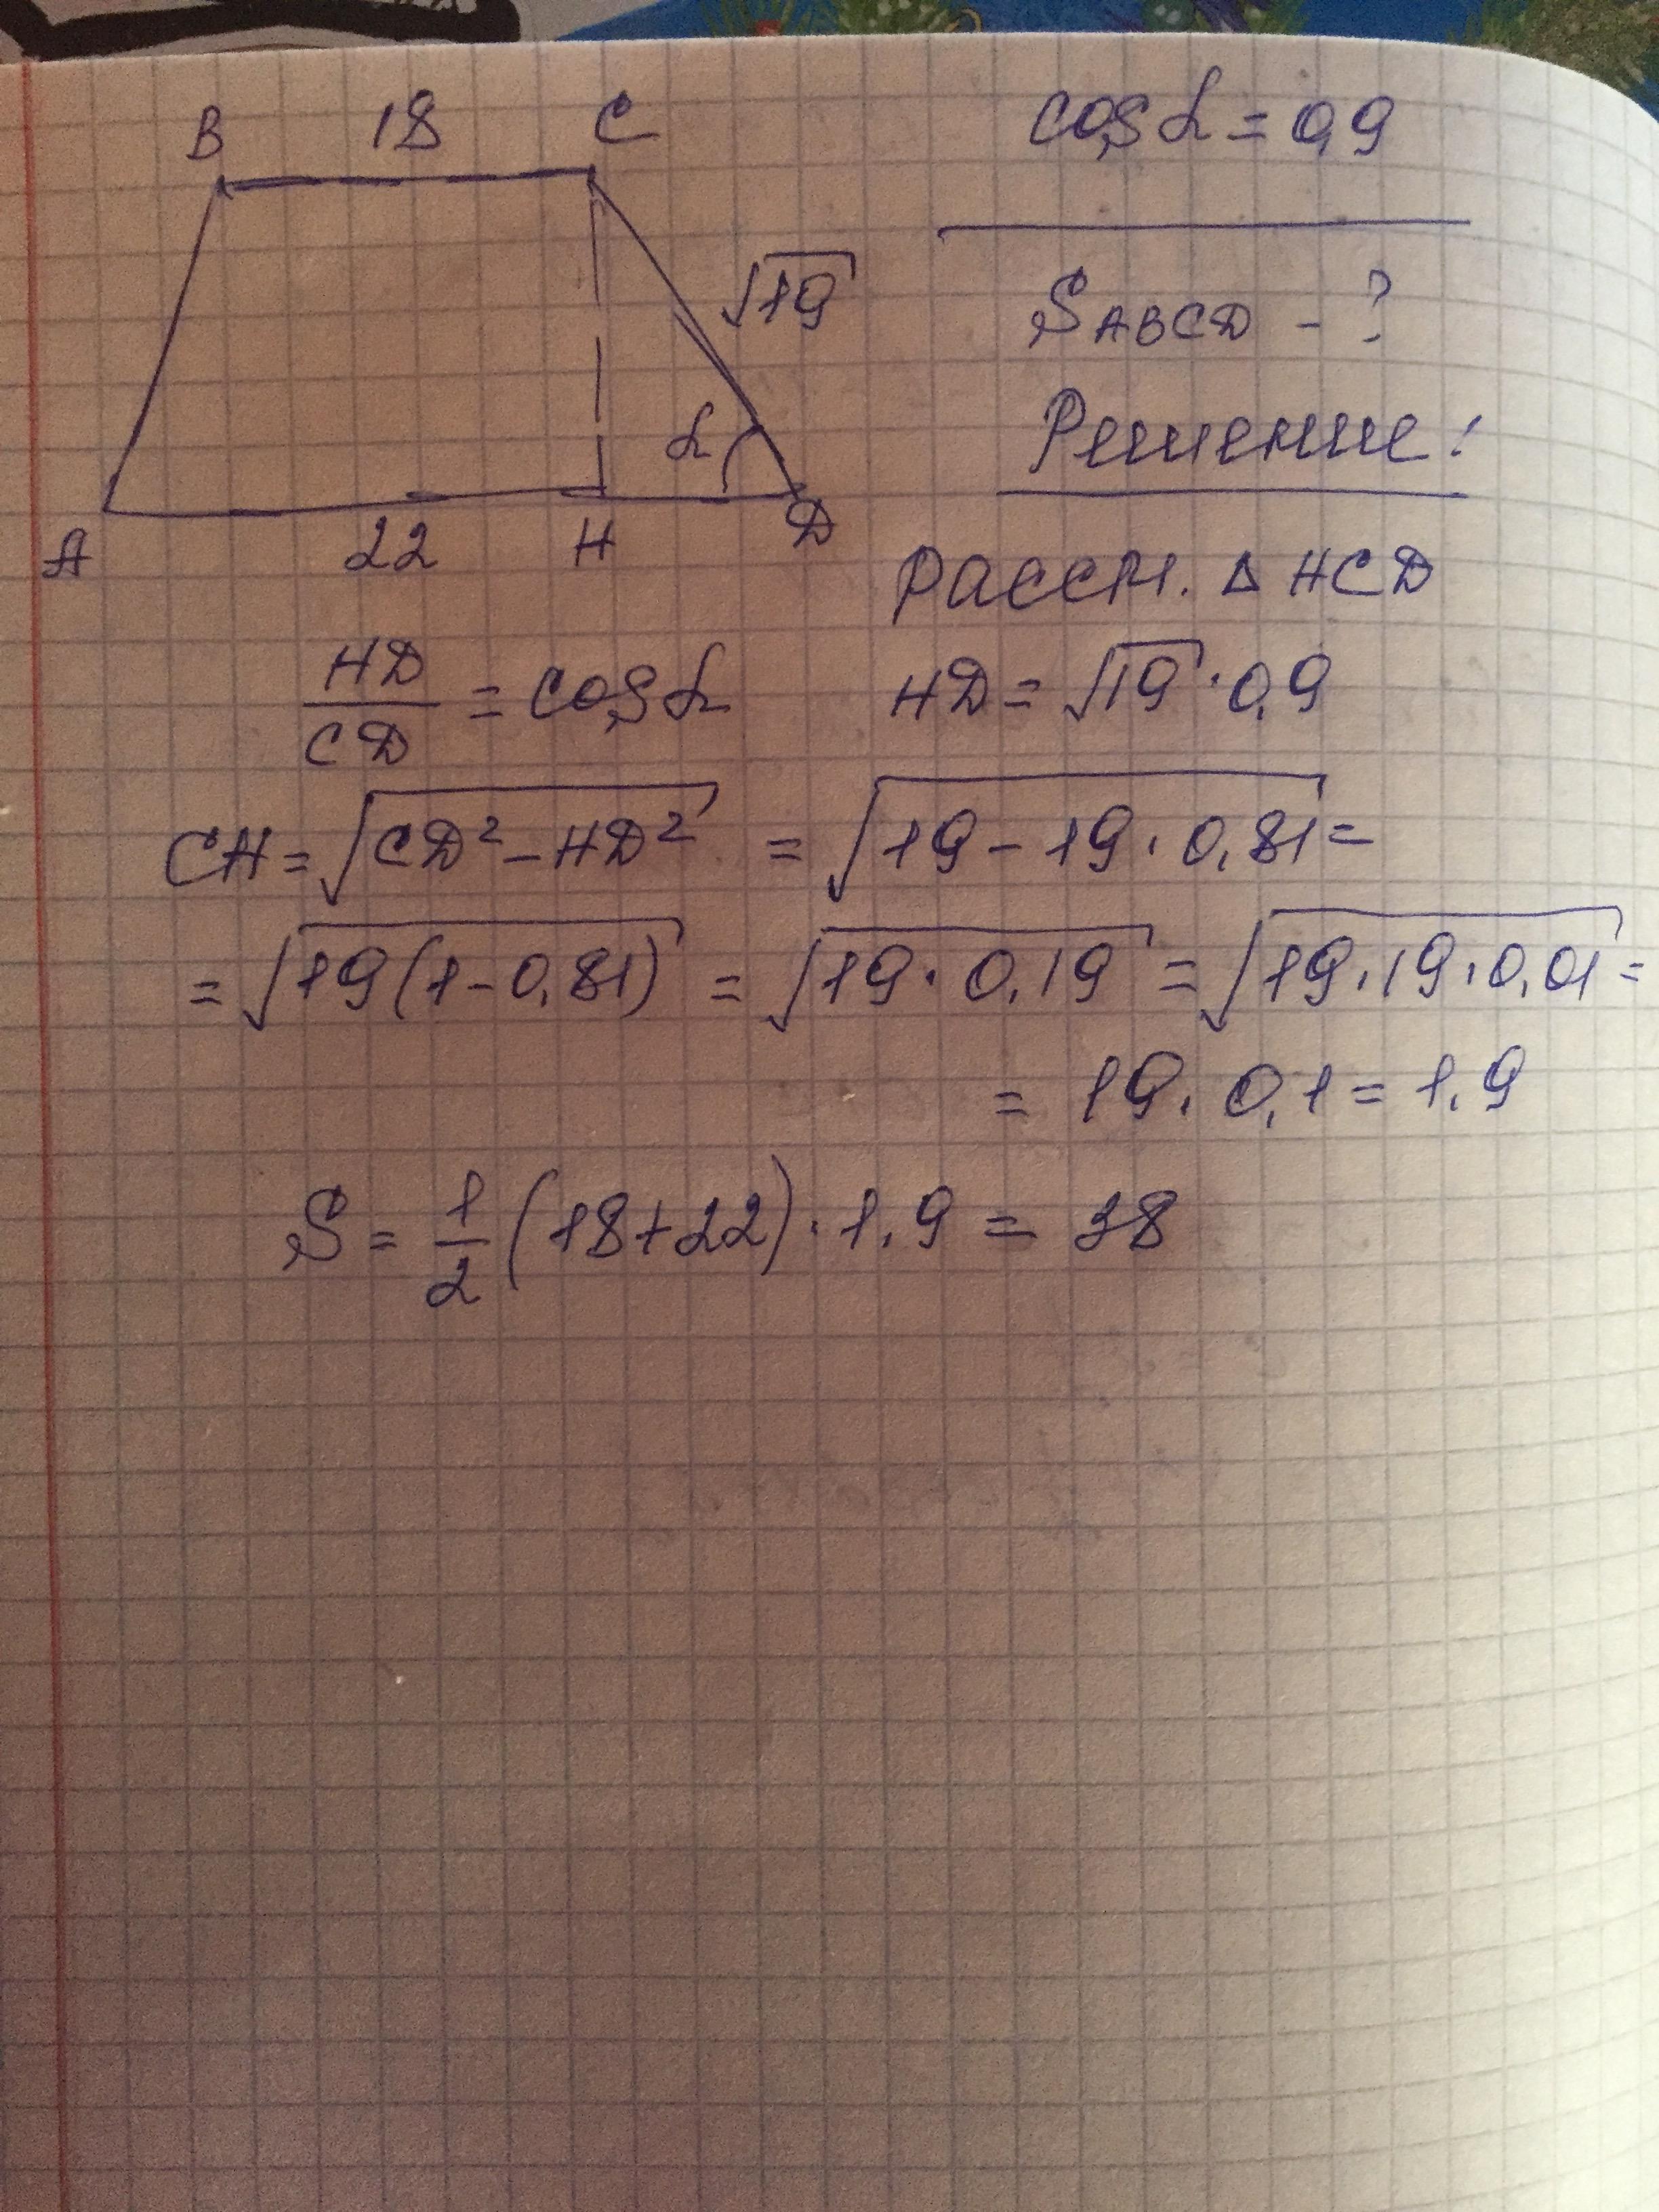 B 18 C
cos α = 0,9
√19
S ABCD - ?
α
Решение:
A 22 H D
Рассм. Δ HCD
HD/CD = cos α HD = √19 · 0,9
CH = √(CD² - HD²) = √(19 - 19 · 0,81) =
= √(19(1 - 0,81)) = √(19 · 0,19) = √(19 · 19 · 0,01) =
= 19 · 0,1 = 1,9
S = 1/2 (18 + 22) · 1,9 = 38